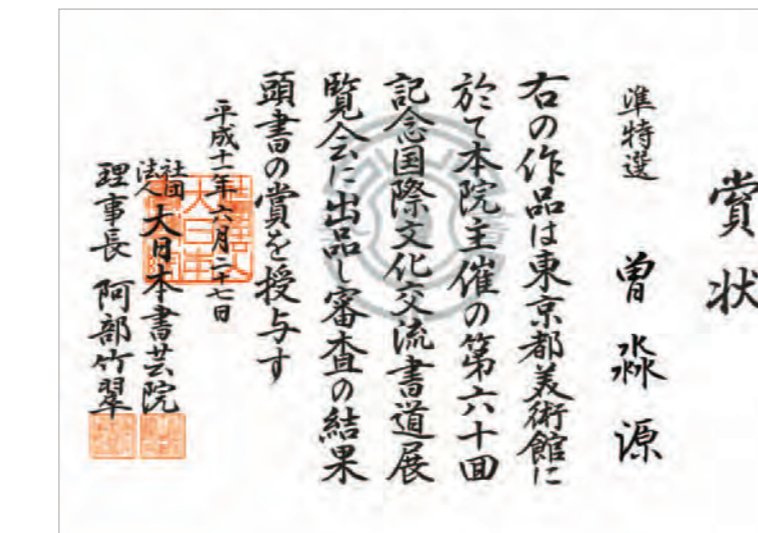 賞状
準特選 曽淼源
右の作品は東京都美術館に
於て本院主催の第六十回
記念国際文化交流書道展
覧会に出品し審査の結果
頭書の賞を授与す
平成十一年六月二十七日
社団法人大日本書芸院
理事長 阿部竹翠